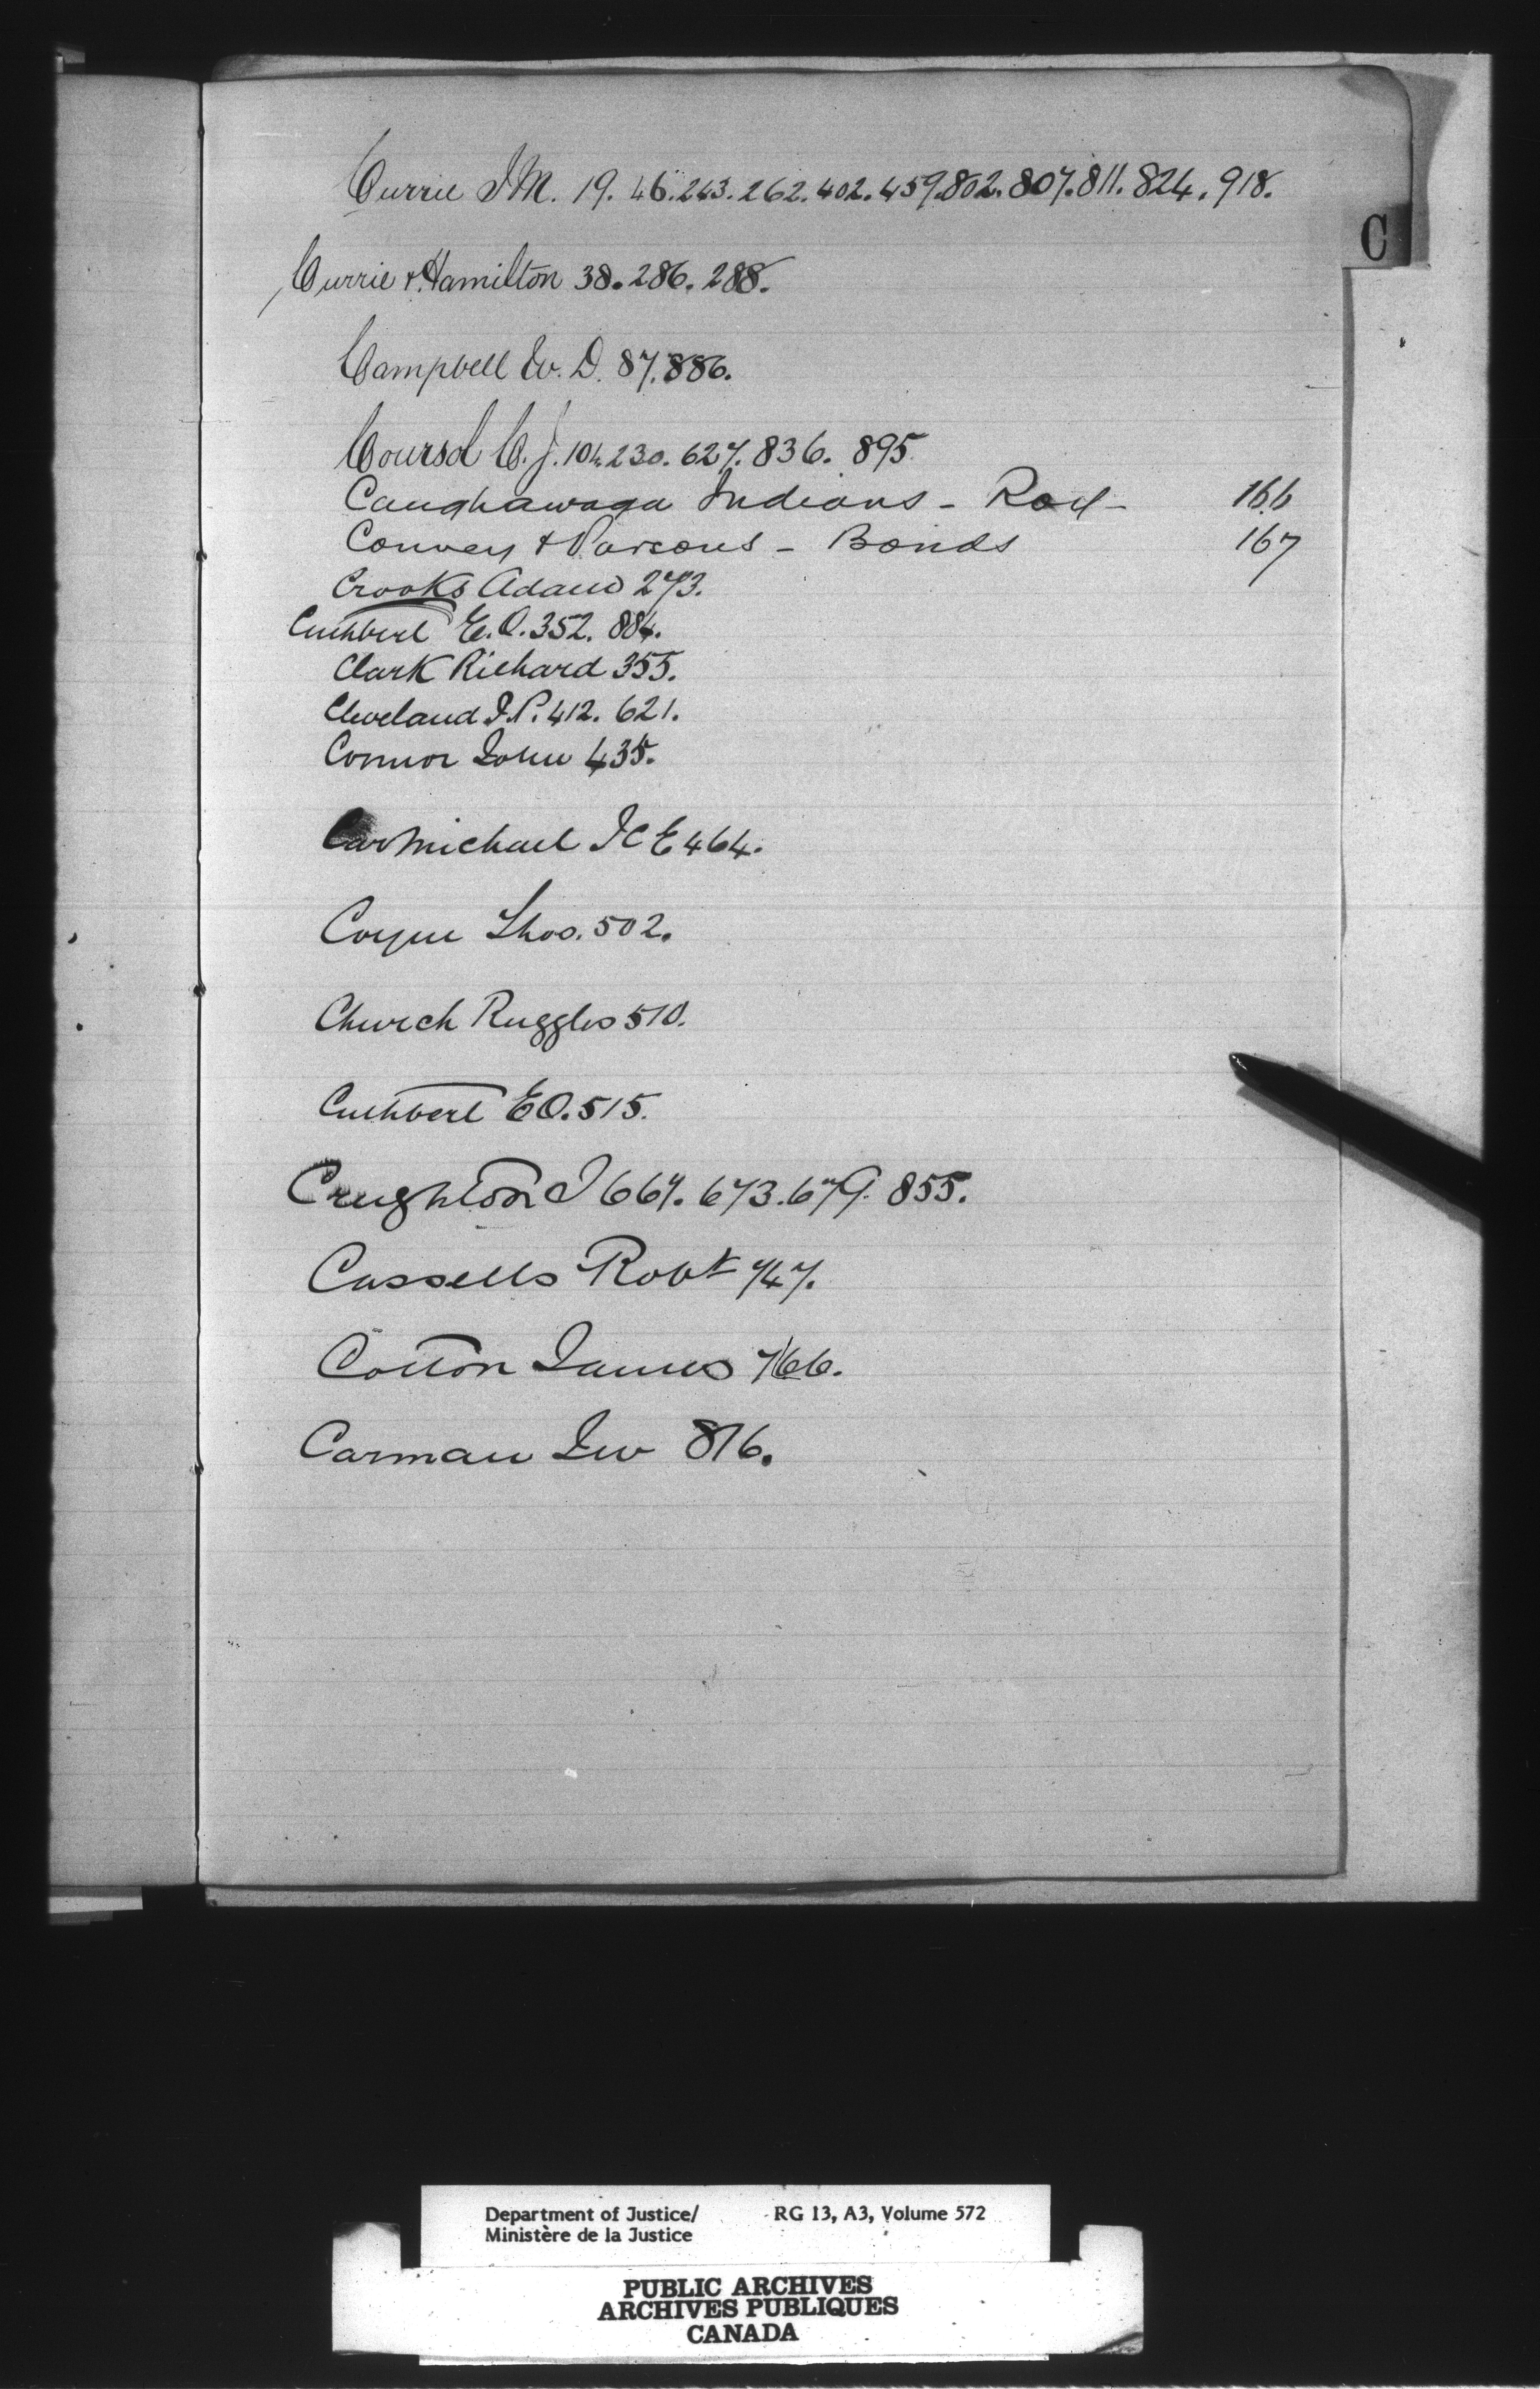 Currie J M. 19. 46. 243. 262. 402. 459. 802. 807. 811. 824. 918.
C
Currie & Hamilton 38. 286. 288.
Campbell W. D. 87. 886.
Coursol C. J. 104. 230. 627. 836. 895
Caughawaga Indians - 166
Convey & Parsons - Bonds 167
Crooks Adam 273.
Cuthbert E. O. 352. 884.
Clark Richard 355.
Cleveland J. P. 412. 621.
Connor John 435.
Carmichael J C E 464.
Coyne Thos. 502.
Church Ruggles 510.
Cuthbert E O. 515.
Creighton J 667. 673. 679. 855.
Cassells Robt 747.
Cotton James 766.
Carman 816.
Department of Justice/ RG 13, A3, Volume 572
Ministère de la Justice
PUBLIC ARCHIVES
ARCHIVES PUBLIQUES
CANADA